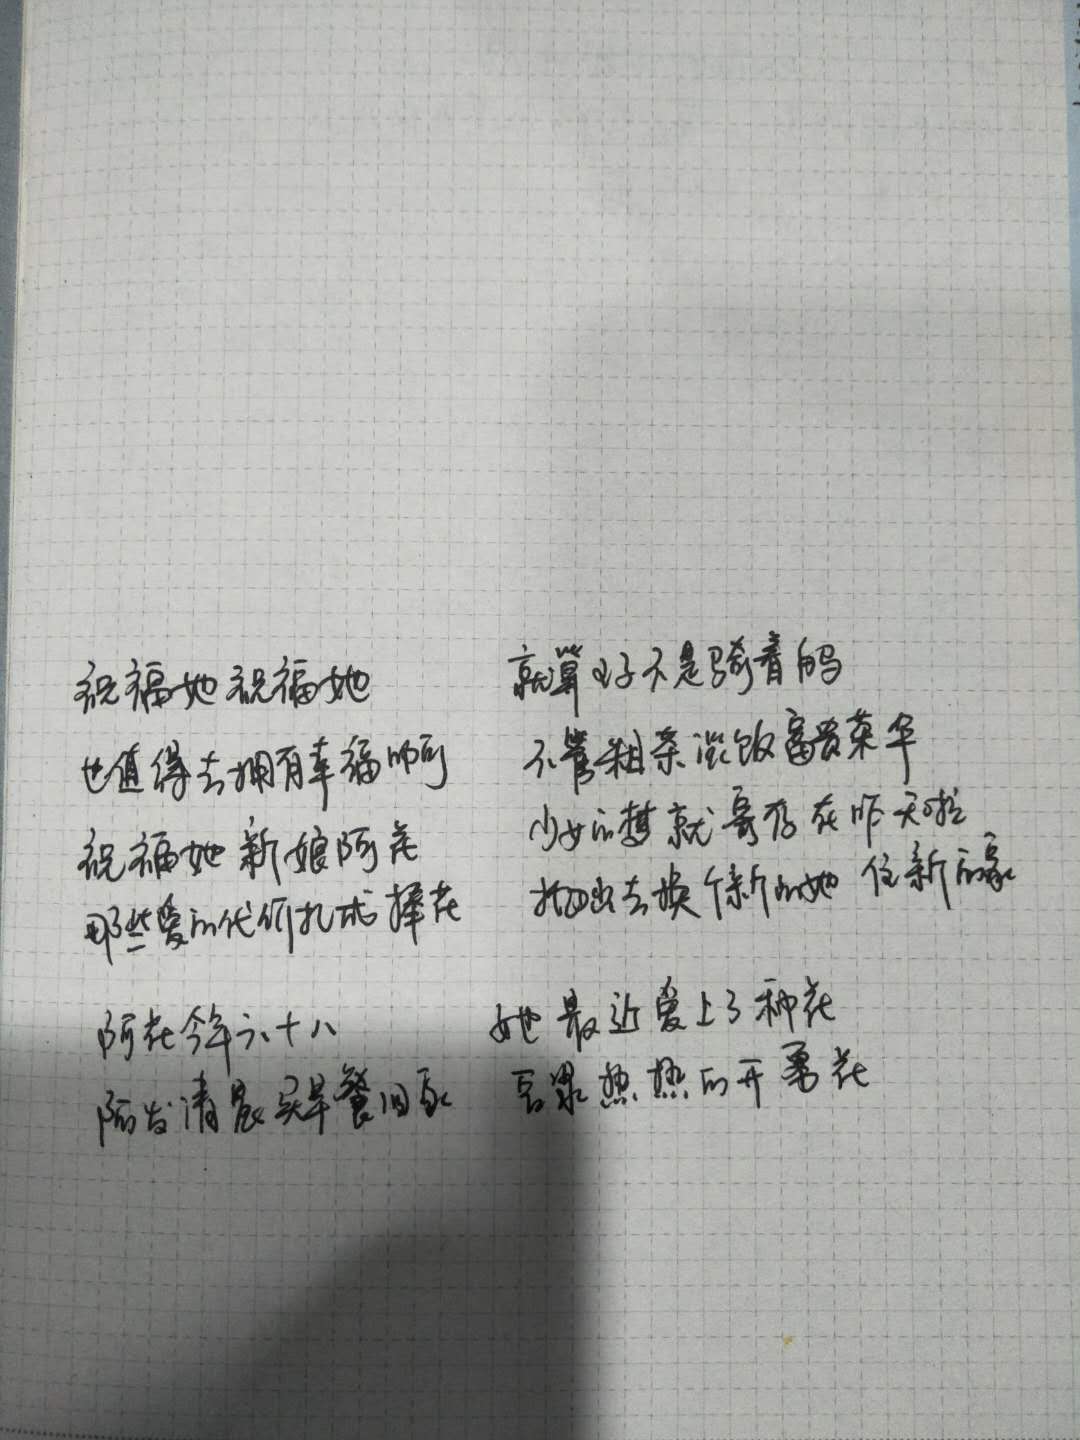 祝福她祝福她 就算娶了不是骑着的马
也值得去拥有幸福啊 不管粗茶淡饭富贵荣华
祝福她新娘阿花 少女的梦就寄存在昨天啦
那些爱的代价扎成捧花 抛出去换个新的她 住新的家
阿花今年六十八 她最近爱上了种花
阿发清晨买早餐回家 豆浆热热的开着花